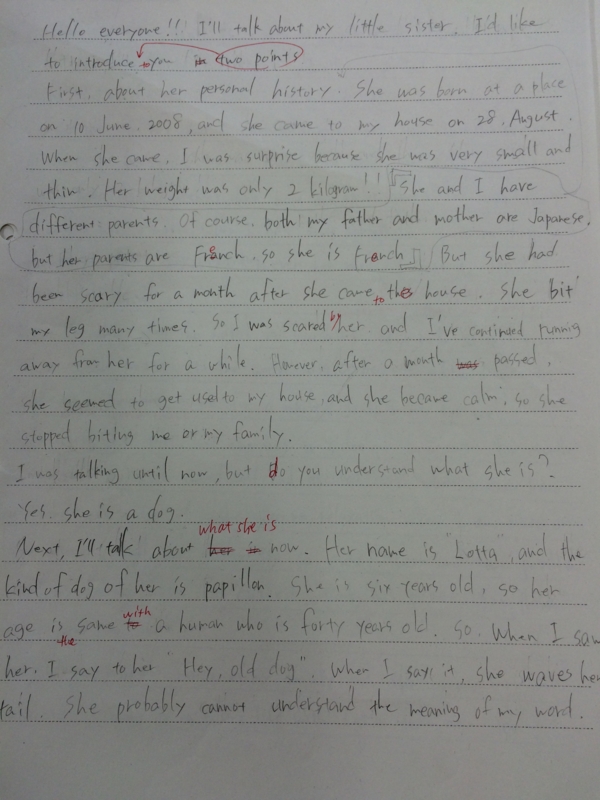 Hello everyone!!! I'll talk about my little sister. I'd like
to introduce to you in two points
First, about her personal history. She was born at a place
on 10 June. 2008, and she came to my house on 28. August.
When she came, I was surprise because she was very small and
thin. Her weight was only 2 kilogram!! She and I have
different parents. Of course, both my father and mother are Japanese.
but her parents are French. so she is French. But she had
been scary for a month after she came to the house. She bit
my leg many times. So I was scared by her and I've continued running
away from her for a while. However, after a month was passed,
she seemed to get used to my house, and she became calm, so she
stopped biting me or my family.
I was talking until now, but do you understand what she is?
Yes. she is a dog.
what she is
Next, I'll talk about her is now. Her name is "Lotta", and the
kind of dog of her is papillon. She is six years old, so her
with
age is same to a human who is forty years old so. When I saw
the
her, I say to her "Hey, old dog". When I say it, she waves her
tail. She probably cannot understand the meaning of my word.